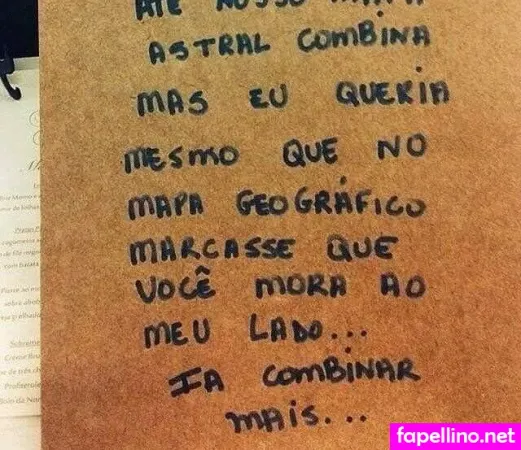 ATÉ NOSSO MAPA
ASTRAL COMBINA
MAS EU QUERIA
MESMO QUE NO
MAPA GEOGRÁFICO
MARCASSE QUE
VOCÊ MORA AO
MEU LADO...
IA COMBINAR
MAIS...
fapellino.net